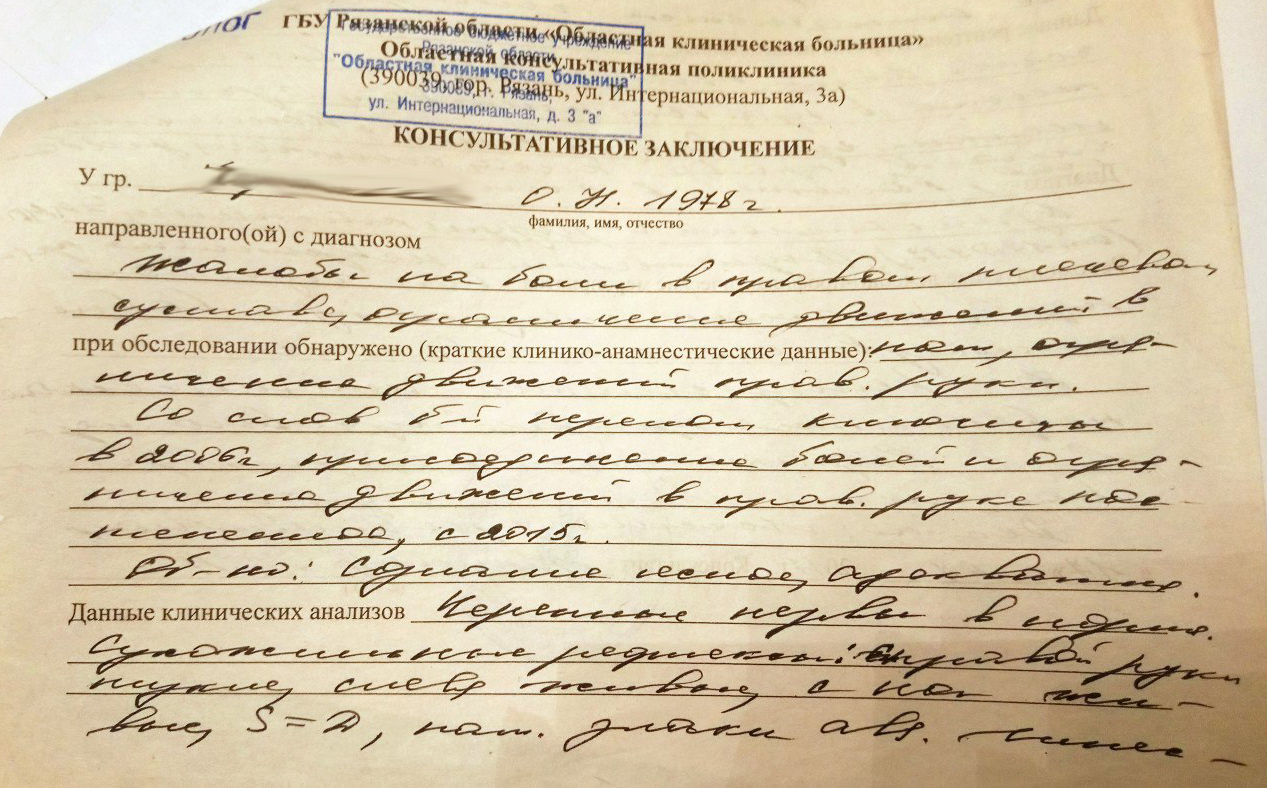 ЛОГ
ГБУ Рязанской области «Областная клиническая больница»
Областная консультативная поликлиника
(390039, гор. Рязань, ул. Интернациональная, 3а)
Государственное бюджетное учреждение
Рязанской области
"Областная клиническая больница"
390039, г. Рязань,
ул. Интернациональная, д. 3 "а"
КОНСУЛЬТАТИВНОЕ ЗАКЛЮЧЕНИЕ
У гр. О. Н. 1978 г.
фамилия, имя, отчество
направленного(ой) с диагнозом
Жалобы на боли в правом плечевом
суставе, ограничение движений в
при обследовании обнаружено (краткие клинико-анамнестические данные): нем, огра-
ничение движений прав. руки.
Со слов б-й перелом ключицы
в 2006г, присоединение болей и огра-
ничения движений в прав. руке пос-
тепенное, с 2015г.
Об-но: Сознание ясное, адекватна.
Данные клинических анализов Черепные нервы в норме.
Сухожильные рефлексы: с правой руки
тупые, слева живые, с ног жи-
вые, S=D, пат. знаки abs.